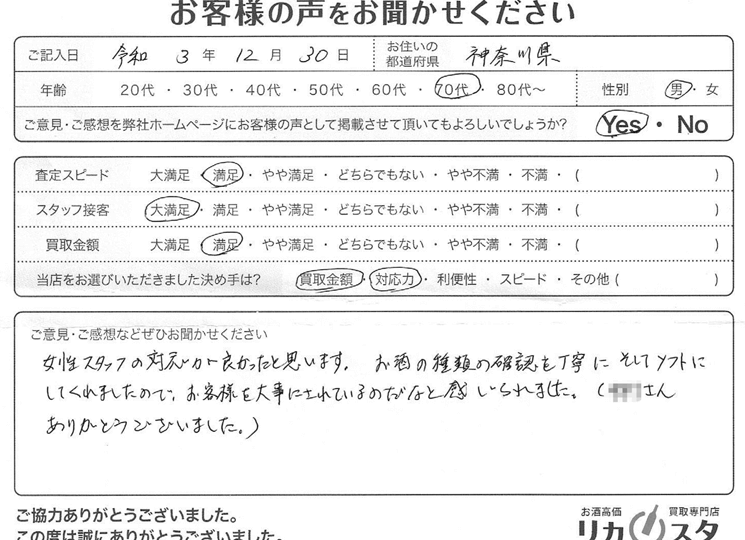 お客様の声をお聞かせください
ご記入日 令和 3 年 12 月 30 日 お住いの都道府県 神奈川県
年齢 20代 ・ 30代 ・ 40代 ・ 50代 ・ 60代 ・ 70代 ・ 80代～ 性別 男 ・ 女
ご意見・ご感想を弊社ホームページにお客様の声として掲載させて頂いてもよろしいでしょうか? Yes ・ No
査定スピード 大満足 ・ 満足 ・ やや満足 ・ どちらでもない ・ やや不満 ・ 不満 ・ ( )
スタッフ接客 大満足 ・ 満足 ・ やや満足 ・ どちらでもない ・ やや不満 ・ 不満 ・ ( )
買取金額 大満足 ・ 満足 ・ やや満足 ・ どちらでもない ・ やや不満 ・ 不満 ・ ( )
当店をお選びいただきました決め手は? 買取金額 ・ 対応力 ・ 利便性 ・ スピード ・ その他 ( )
ご意見・ご感想などぜひお聞かせください
女性スタッフの対応が良かったと思います。 お酒の種類の確認も丁寧に そしてソフトに
してくれましたので、お客様を大事にされているのだなと感じられました。 ( さん
ありがとうございました。)
ご協力ありがとうございました。
この度は誠にありがとうございました。
お酒高価 買取専門店
リカスタ